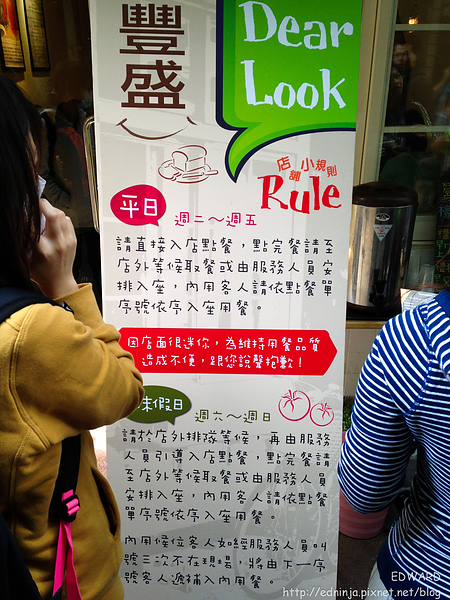 豐盛
Dear
Look
店舖小規則
Rule
平日
週二～週五
請直接入店點餐，點完餐請至
店外等候取餐或由服務人員安
排入座，內用客人請依點餐單
序號依序入座用餐。
因店面很迷你，為維持用餐品質
造成不便，跟您說聲抱歉！
末假日
週六～週日
請於店外排隊等候，再由服務
人員引導入店點餐，點完餐請
至店外等候取餐或由服務人員
安排入座，內用客人請依點餐
單序號依序入座用餐。
內用候位客人如經服務人員叫
號三次不在現場，將由下一序
號客人遞補入內用餐。
EDWARD
http://edninja.pixnet.net/blog